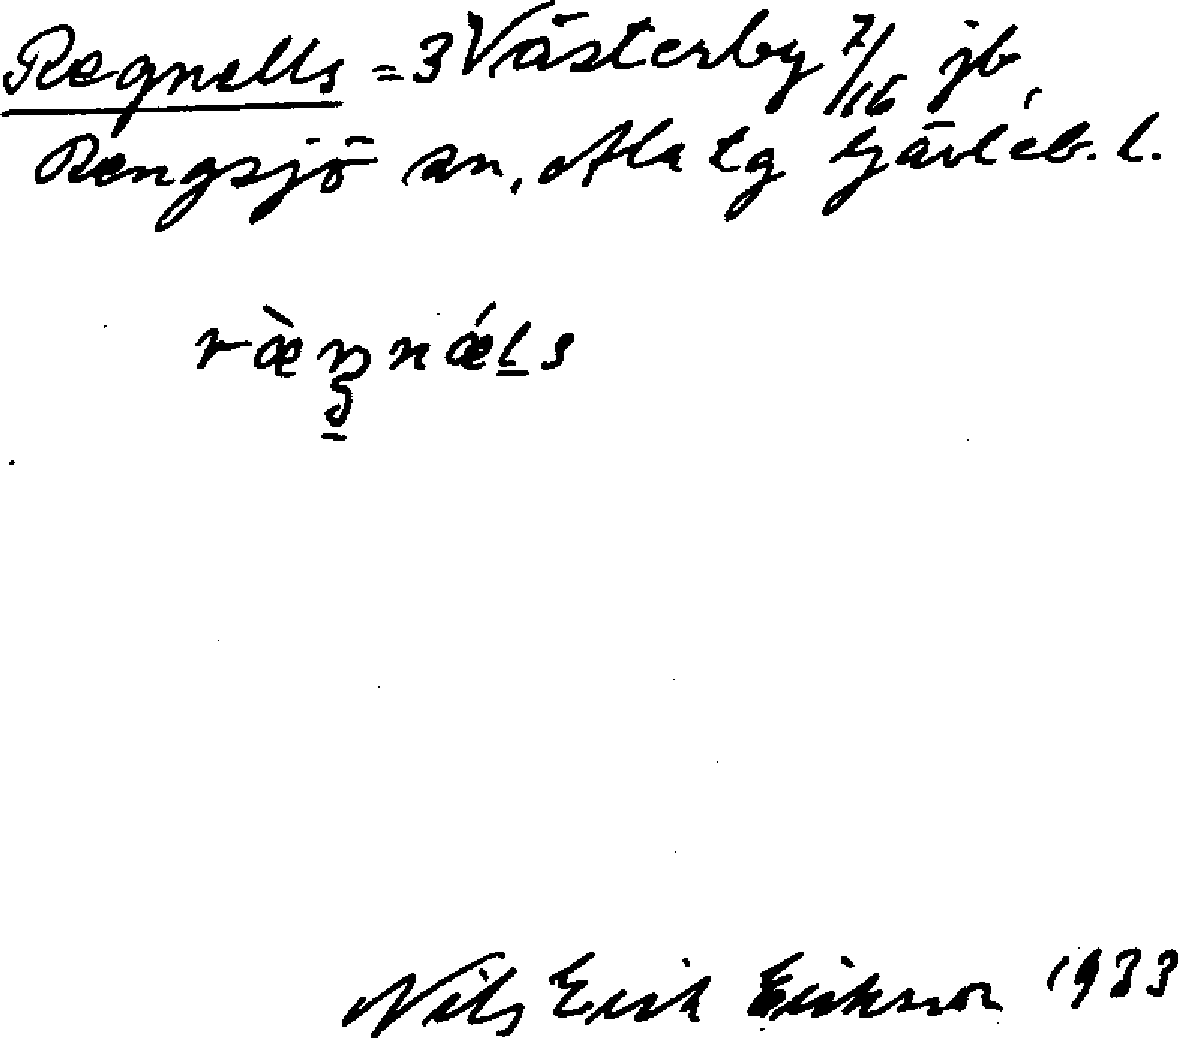 Regnells = 3 Västerby 7/16 jb,
Rengsjö sn, Ala tg Gävleb. l.
ræ̀ŋnǽls
Nils Erik Eriksson 1933